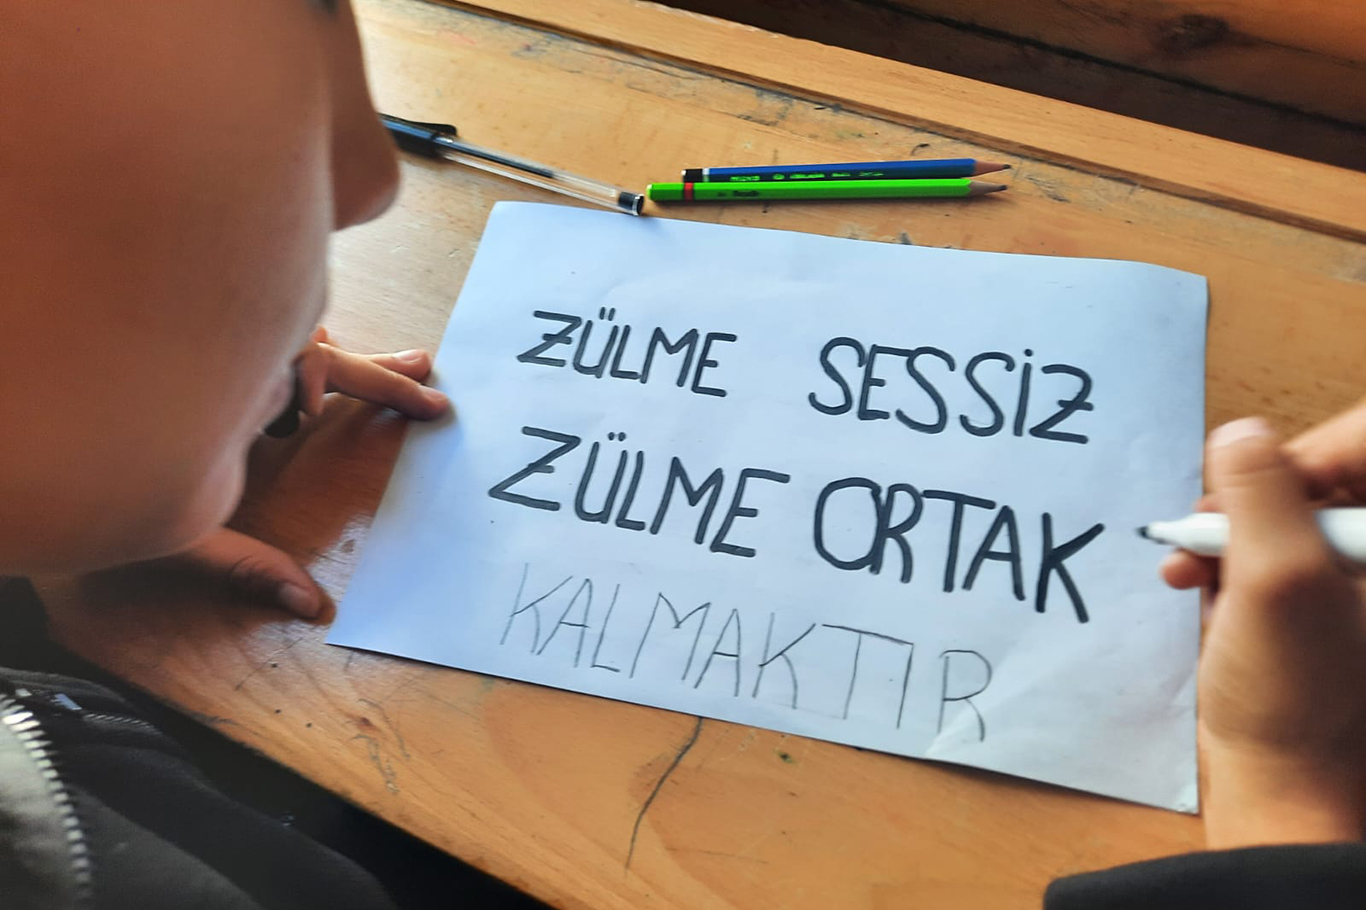 ZÜLME SESSİZ
ZÜLME ORTAK
KALMAKTIR